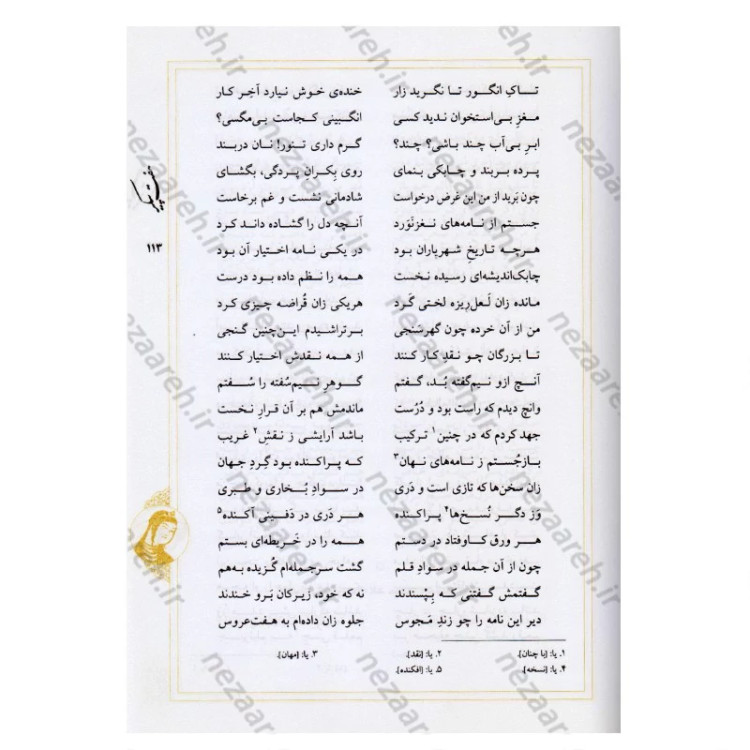 تـــاکِ انگـــور تـــا نگریـــد زار خنده‌ی خـوش نیـارد آخِـر کار
مغـز بی‌اســتخوان ندیـد کسی انگــبینی کجاســت بی‌مگسی؟
ابـرِ بی‌آب چنـد باشی؟ چنـد؟ گـرم داری تنـور! نـان دربنـد
پـرده بربنـد و چابـکی بنمای روی بِکـرانِ پـردگی، بگشای
چون بَرید از من این غَرض درخواست شادمانی نشست و غم برخاست
جُســتم از نامه‌های نغزنَوَرد آنچـه دل را گشـاده دانـد کـرد
هرچـه تاریـخ شهریاران بود در یکی نامه اختیار آن بود
چابک‌اندیشه‌ای رسیده نخست همـه را نظـم داده بـود درست
مانده زان لَعل‌ریزه لختی گَرد هریکی زان قُراضه چیزی کرد
من از آن خرده چون گهرسَنجی برتراشـیدم این‌چنین گنـجی
تـا بـزرگان چـو نقـد کار کننـد از همـه نـقـدش اختیار کنند
آنـچ ازو نیـم‌گفته بُـد، گـفتم گوهـرِ نیـم‌سُفته را سُـفتم
وانچ دیدم که راست بود و دُرُست ماندمش هم بر آن قرارِ نخست
جهد کردم که در چنین۱ ترکیب باشـد آرایشی ز نقشِ۲ غریب
بازجُـستم ز نامه‌های نهان۳ که پـراکنده بود گِـردِ جهان
زان سخن‌ها که تازی است و دَری در سـوادِ بُخـاری و طبـری
وَز دگـر نُسـخ‌ها۴ پراکنـده هـر دَری در دَفـینی آکنـده۵
هـر ورق کـاوفتاد در دسـتم همـه را در خَریطه‌ای بستم
چون از آن جمله در سوادِ قلم گشت سرجمله‌ام گُزیده به‌هم
گـفتمش گـفتنی کـه بِپْسـندند نه که خود، زیرکان بَرو خندند
دیـر ایـن نامه را چو زندِ مَجوس جلوه زان داده‌ام به هفت‌عروس
۱. یا: [با چنان]. ۲. یا: [نقد]. ۳. یا: [مهان].
۴. یا: [نسخه]. ۵. یا: [افکنده].
هفت پیکر
۱۱۳
nezaareh.ir